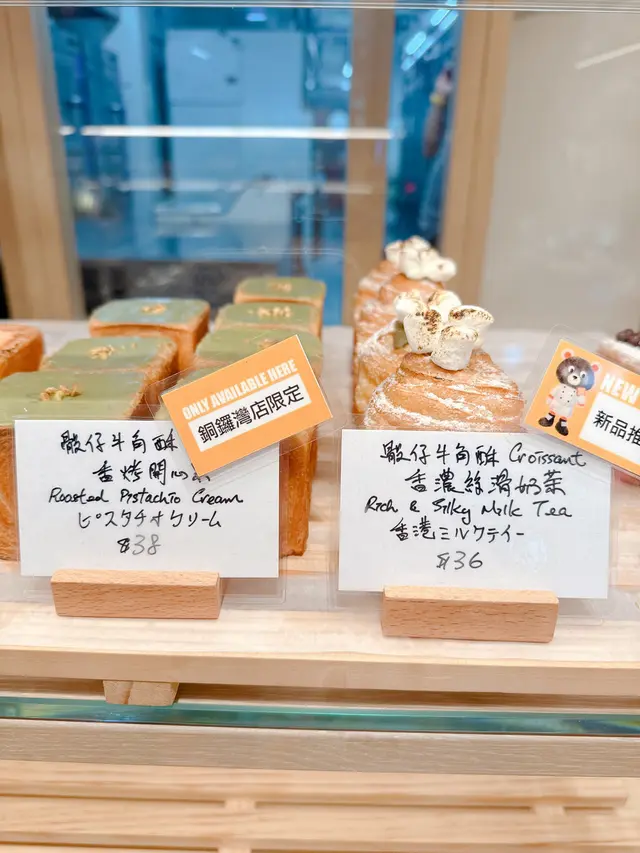 骰仔牛角酥
香烤開心
Roasted Pistachio Cream
ピスタチオクリーム
$38
ONLY AVAILABLE HERE
銅鑼灣店限定
骰仔牛角酥 Croissant
香濃絲滑奶茶
Rich & Silky Milk Tea
香港ミルクティー
$36
NEW
新品推